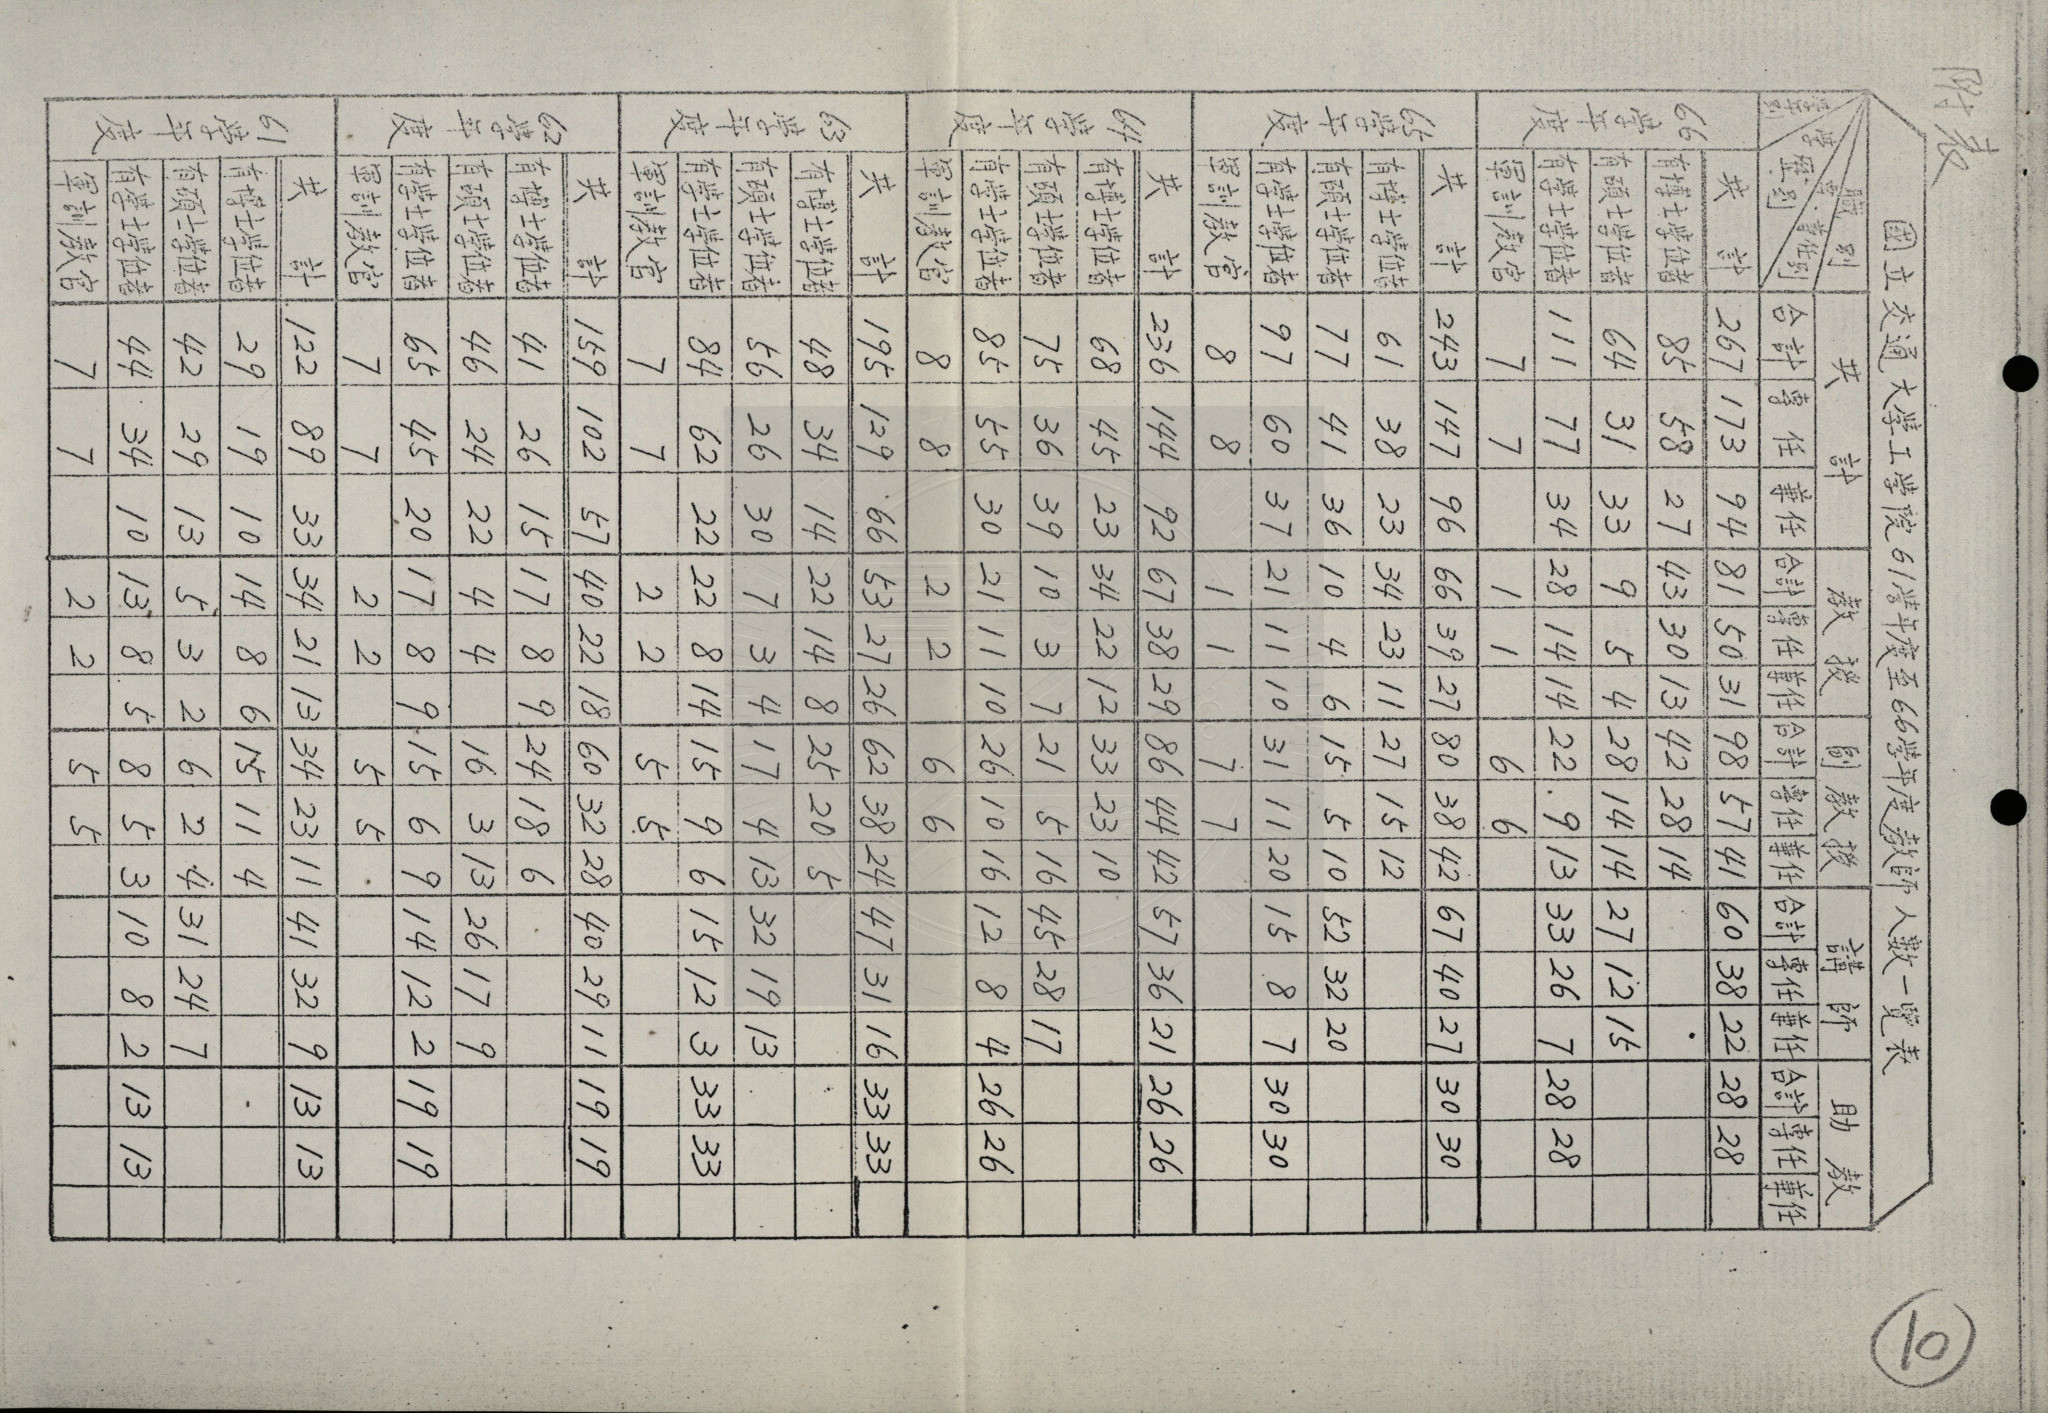 附表
國立交通大學工學院61學年度至66學年度教師人數一覽表
學年別 學歷別 專.兼任別 職別 共計 教授 副教授 講師 助教
合計 專任 兼任 合計 專任 兼任 合計 專任 兼任 合計 專任 兼任 合計 專任 兼任
66學年度
共計 267 173 94 81 50 31 98 57 41 60 38 22 28 28
有博士學位者 85 58 27 43 30 13 42 28 14
有碩士學位者 64 31 33 9 5 4 28 14 14 27 12 15
有學士學位者 111 77 34 28 14 14 22 9 13 33 26 7 28 28
軍訓教官 7 7 1 1 6 6
65學年度
共計 243 147 96 66 39 27 80 38 42 67 40 27 30 30
有博士學位者 61 38 23 34 23 11 27 15 12
有碩士學位者 77 41 36 10 4 6 15 5 10 52 32 20
有學士學位者 97 60 37 21 11 10 31 11 20 15 8 7 30 30
軍訓教官 8 8 1 1 7 7
64學年度
共計 236 144 92 67 38 29 86 44 42 57 36 21 26 26
有博士學位者 68 45 23 34 22 12 33 23 10
有碩士學位者 75 36 39 10 3 7 21 5 16 45 28 17
有學士學位者 85 55 30 21 11 10 26 10 16 12 8 4 26 26
軍訓教官 8 8 2 2 6 6
63學年度
共計 195 129 66 53 27 26 62 38 24 47 31 16 33 33
有博士學位者 48 34 14 22 14 8 25 20 5
有碩士學位者 56 26 30 7 3 4 17 4 13 32 19 13
有學士學位者 84 62 22 22 8 14 15 9 6 15 12 3 33 33
軍訓教官 7 7 2 2 5 5
62學年度
共計 159 102 57 40 22 18 60 32 28 40 29 11 19 19
有博士學位者 41 26 15 17 8 9 24 18 6
有碩士學位者 46 24 22 4 4 16 3 13 26 17 9
有學士學位者 65 45 20 17 8 9 15 6 9 14 12 2 19 19
軍訓教官 7 7 2 2 5 5
61學年度
共計 122 89 33 34 21 13 34 23 11 41 32 9 13 13
有博士學位者 29 19 10 14 8 6 15 11 4
有碩士學位者 42 29 13 5 3 2 6 2 4 31 24 7
有學士學位者 44 34 10 13 8 5 8 5 3 10 8 2 13 13
軍訓教官 7 7 2 2 5 5
10